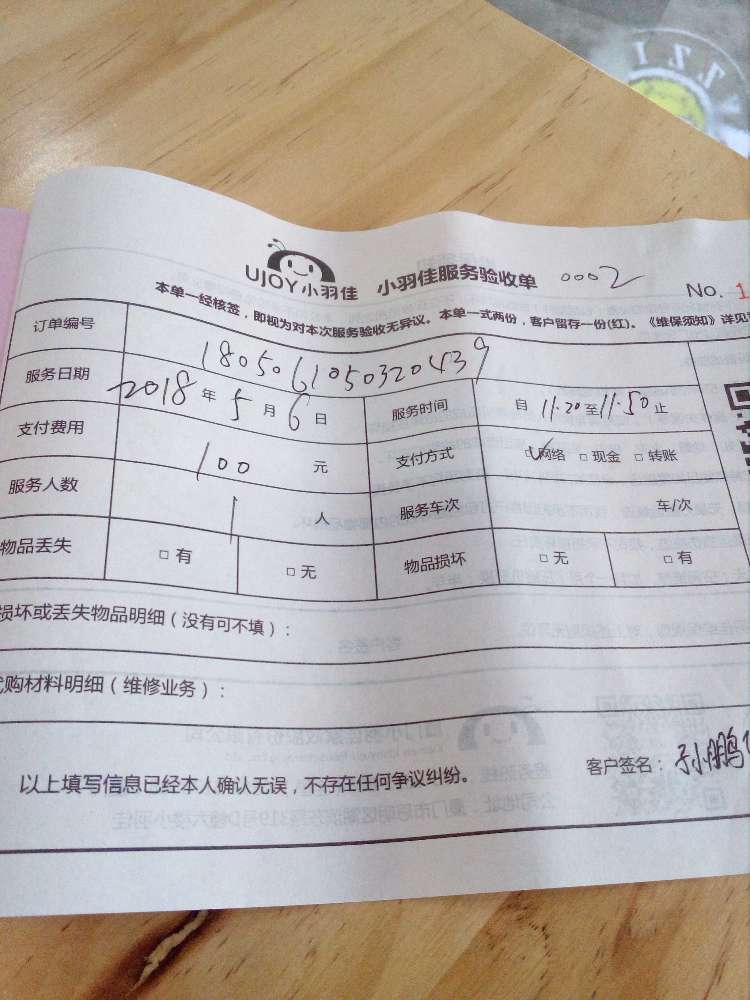 UJOY小羽佳 小羽佳服务验收单 0002
No. 1
本单一经核签，即视为对本次服务验收无异议。本单一式两份，客户留存一份(红)。《维保须知》详见
订单编号 1805061050320439
服务日期 2018年5月6日 服务时间 自11.20至11.50止
支付费用 100元 支付方式 ☑网络 □现金 □转账
服务人数 1人 服务车次 车/次
物品丢失 □有 □无 物品损坏 □无 □有
损坏或丢失物品明细（没有可不填）：
购材料明细（维修业务）：
以上填写信息已经本人确认无误，不存在任何争议纠纷。 客户签名：孙鹏